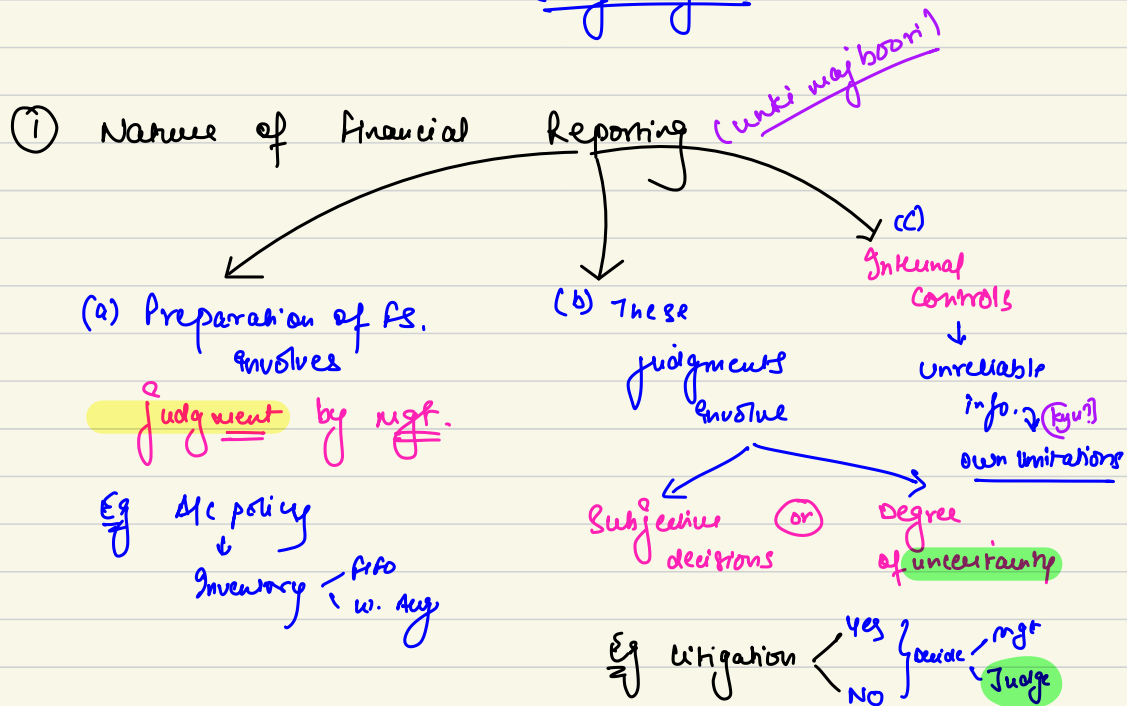 (i) Nature of Financial Reporting (unki majboori)
(a) Preparation of FS.
involves
judgment by mgt.
Eg A/c policy
Inventory
FIFO
W. Avg
(b) These
judgments
involve
Subjective
decisions
(or)
Degree
of uncertainty
Eg Litigation
Yes
NO
Decide
mgt
Judge
(c)
Internal
Controls
unreliable
info. (kyu?)
own limitations